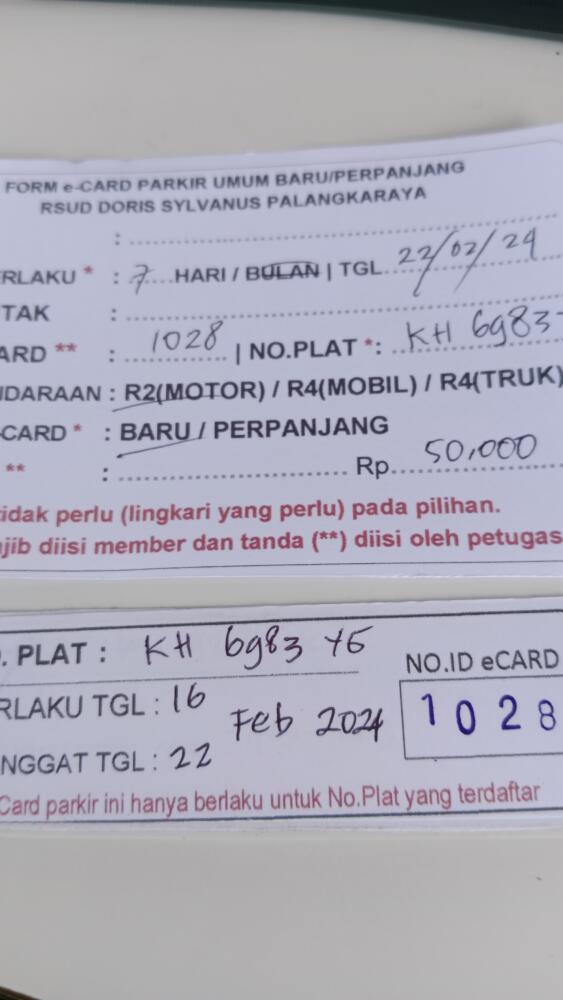 FORM e-CARD PARKIR UMUM BARU/PERPANJANG
RSUD DORIS SYLVANUS PALANGKARAYA
: ....................
ERLAKU * : 7 HARI / BULAN | TGL 22/02/24
TAK :
ARD ** : 1028 | NO.PLAT *: KH 6983
NDARAAN : R2(MOTOR) / R4(MOBIL) / R4(TRUK)
-CARD * : BARU / PERPANJANG
** : .................... Rp. 50,000
tidak perlu (lingkari yang perlu) pada pilihan.
ajib diisi member dan tanda (**) diisi oleh petugas
. PLAT : KH 6983 YG
NO.ID eCARD
RLAKU TGL : 16
Feb 2024
1028
NGGAT TGL : 22
Card parkir ini hanya berlaku untuk No.Plat yang terdaftar